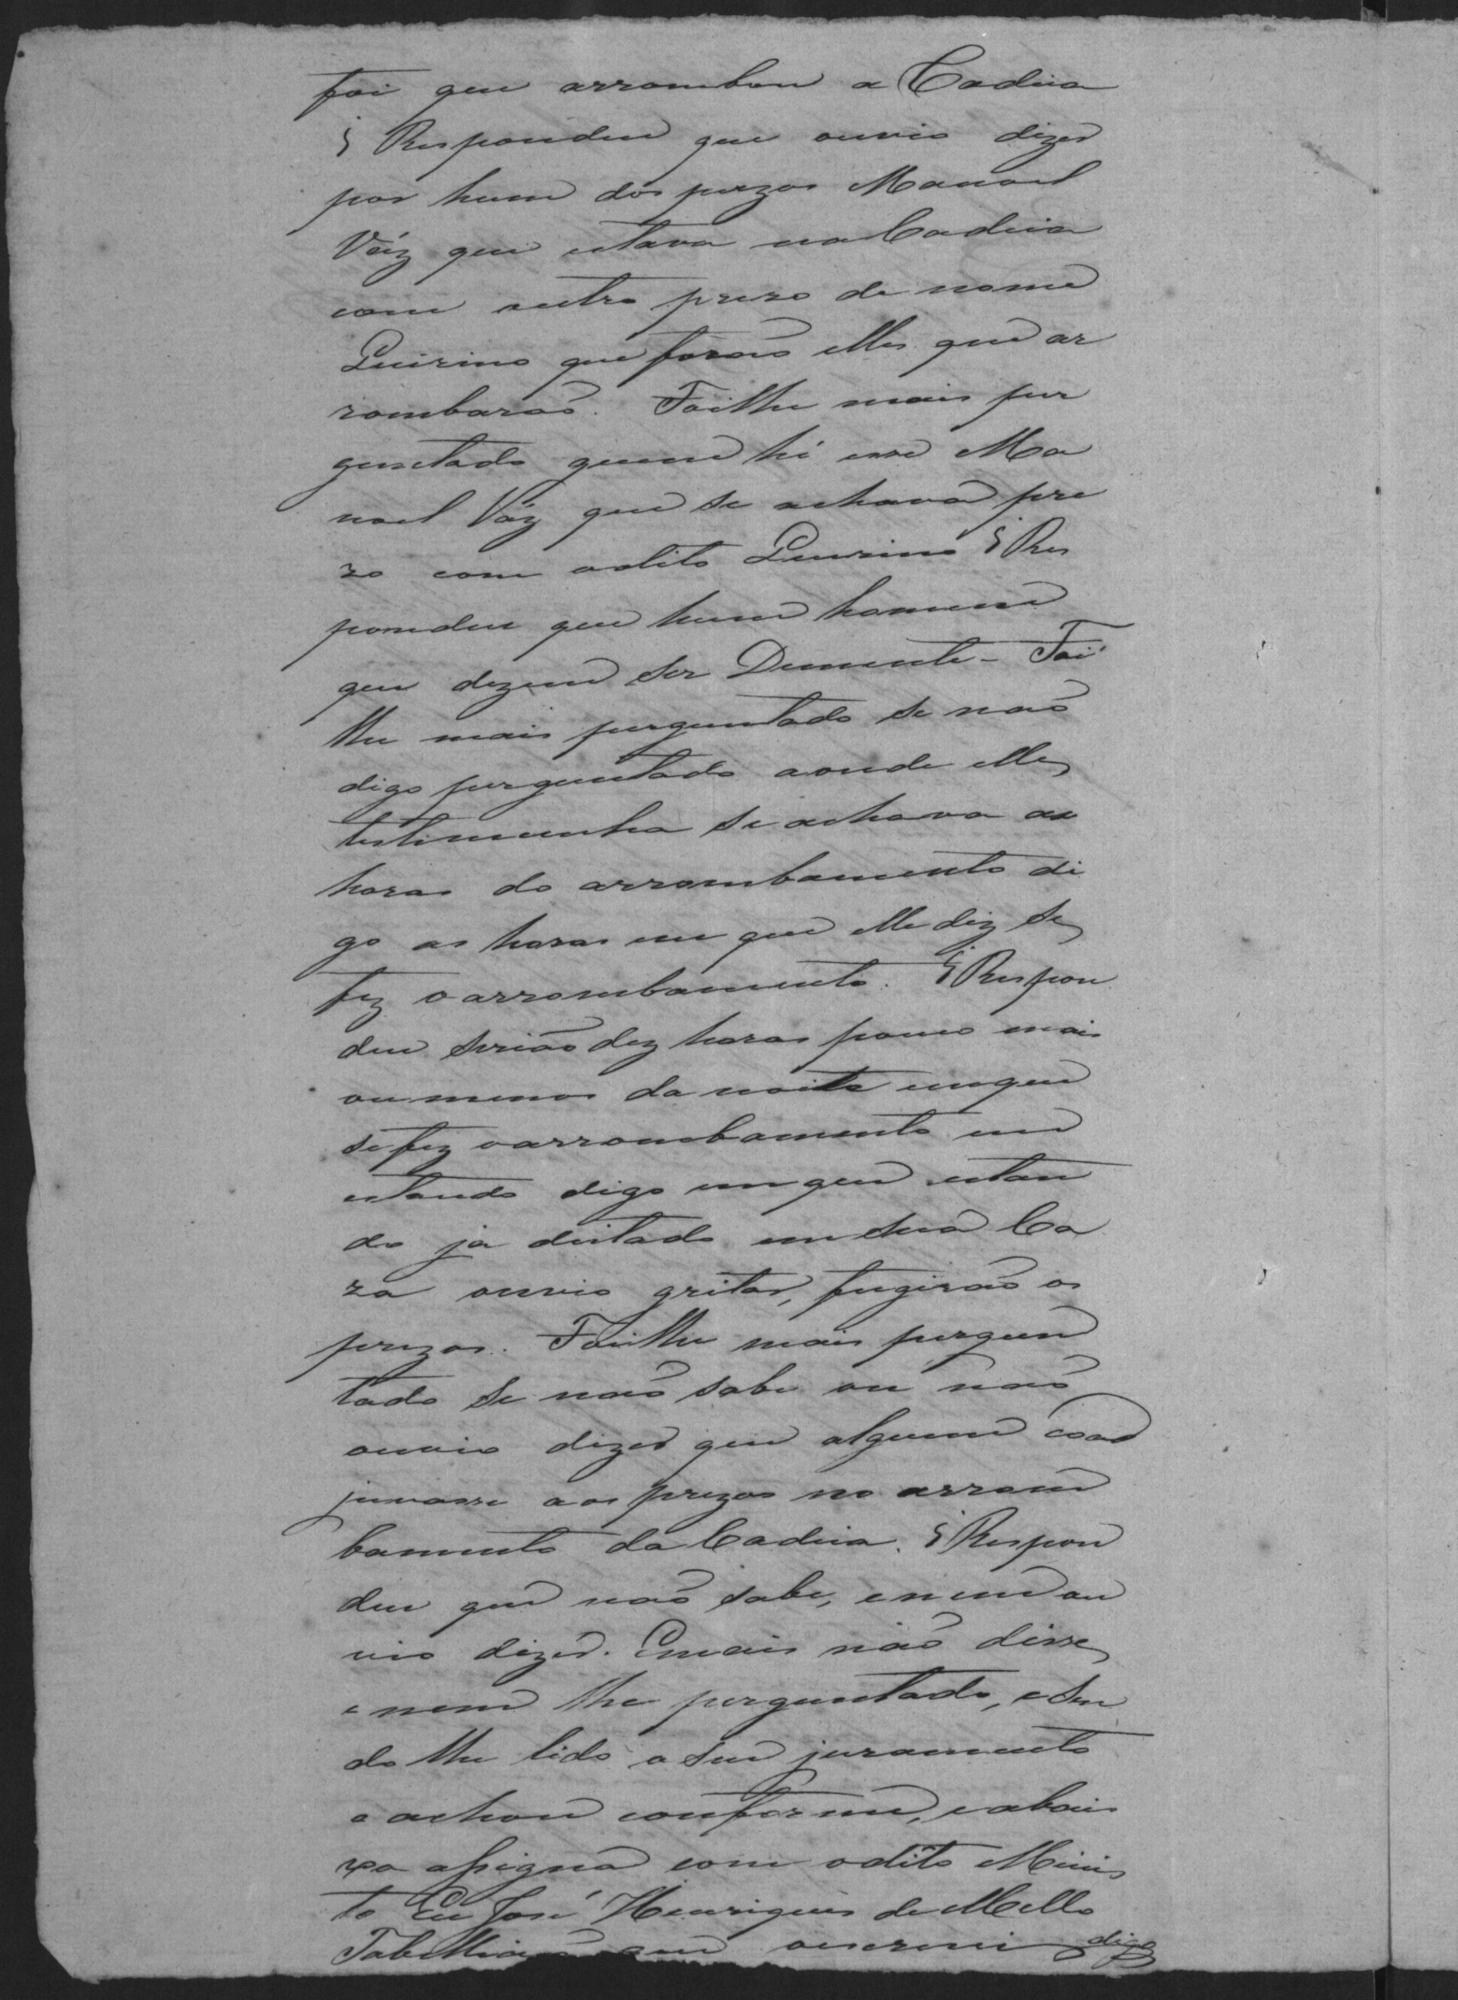 foi que arrombou a Cadeia
§ Respondeu que ouvio dizer
por hum dos prezos Manoel
Váz que estava na Cadeia
com outro prezo de nome
Quirino que foraõ elles que ar
rombaraõ. Foilhe mais per
guntado quem hé esse Ma
noel Váz que se achava pre
zo com o dito Quirino § Res
pondeu que hum homem
que dizem ser Demente - Foi
lhe mais perguntado se naõ
digo perguntado aonde elle
testimunha se achava as
horas do arrombamento di
go as horas em que elle diz se
fez o arrombamento. § Respon
deu seriaõ dez horas pouco mais
ou menos da noite em que
se fez o arrombamento em
estando digo em que estan
do ja deitado em sua Ca
za ouvio gritar, fugiraõ os
prezos. Foilhe mais pergun
tado se naõ sabe ou naõ
ouvio dizer que alguem coad
juvasse aos prezos no arrom
bamento da Cadeia. § Respon
deu que naõ sabe, e nem ou
vio dizer. E mais naõ disse
e nem lhe perguntado, e sen
do lhe lido o seu juramento
o achou conforme, e abai
xo assigna com o dito Minis
to Eu José Henriques de Mello
Tabelliaõ que o escrevi digo